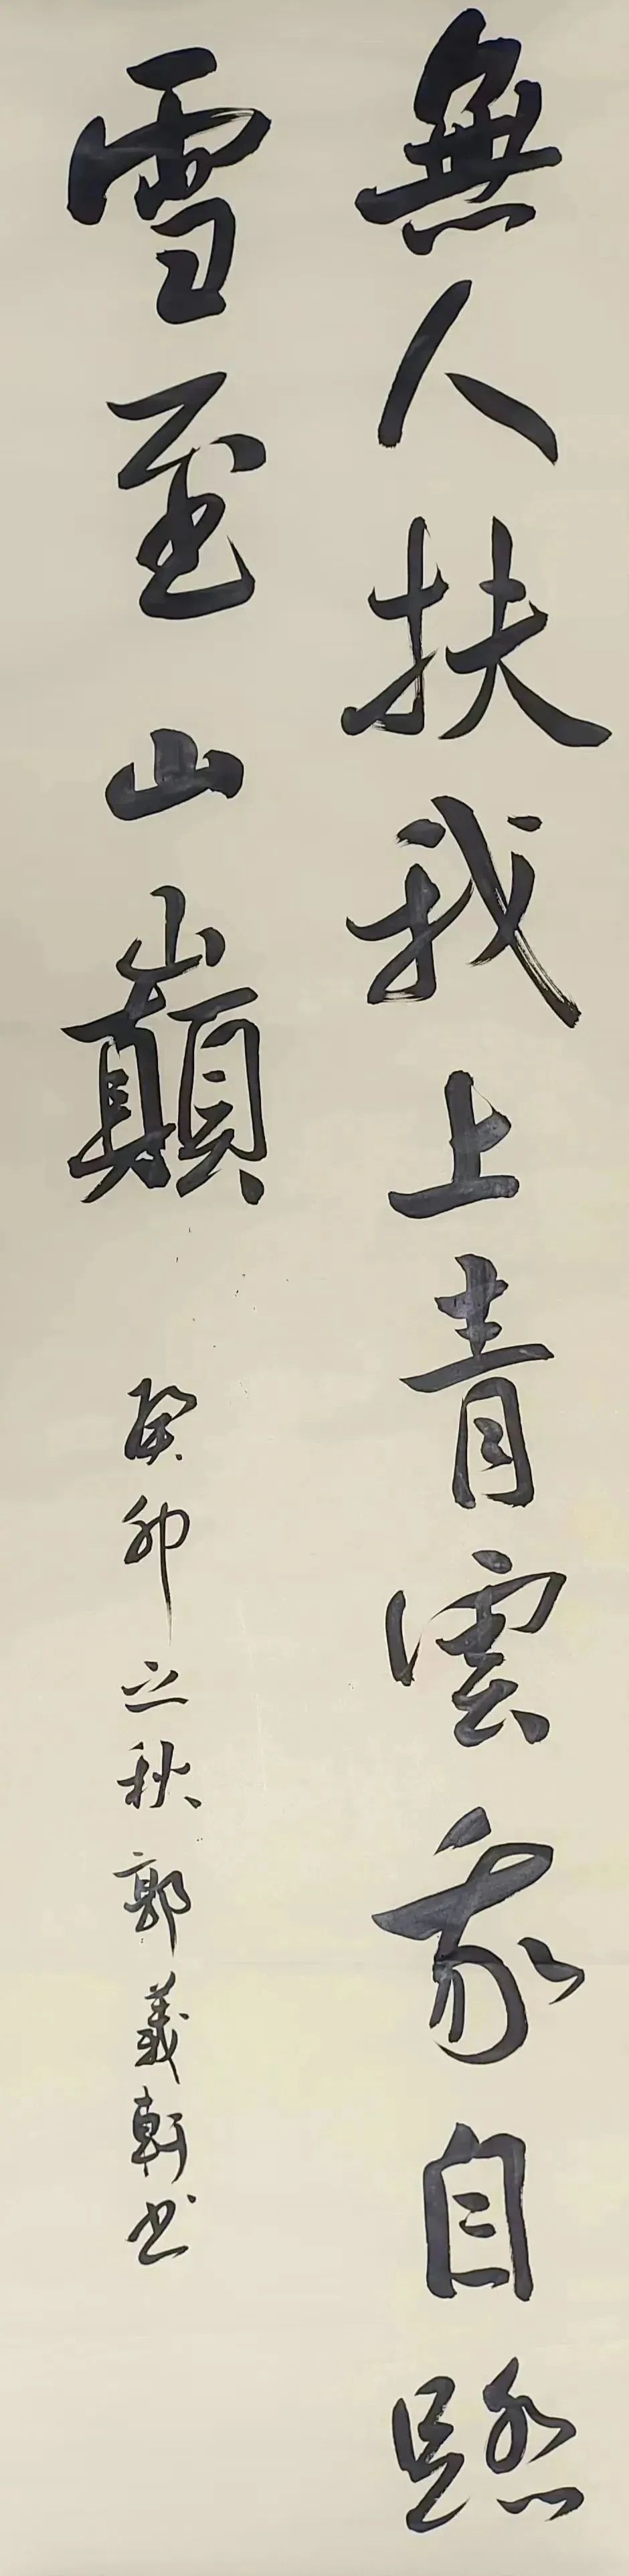 無人扶我上青雲我自踏
雪至山巔
癸卯之秋郭義軒书